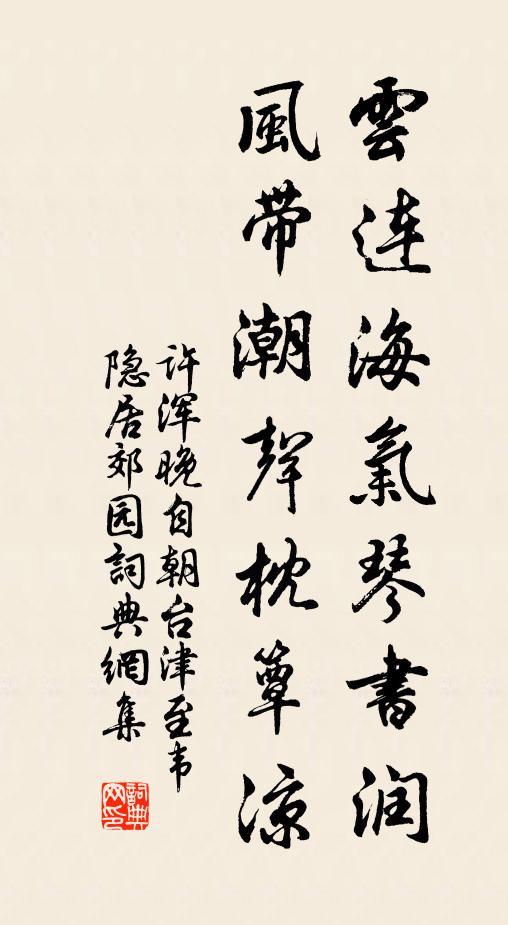 雲连海氣琴書润
風带潮聲枕簟凉
许浑晚自朝台津至韦
隐居郊园詞典網集
詞典网印